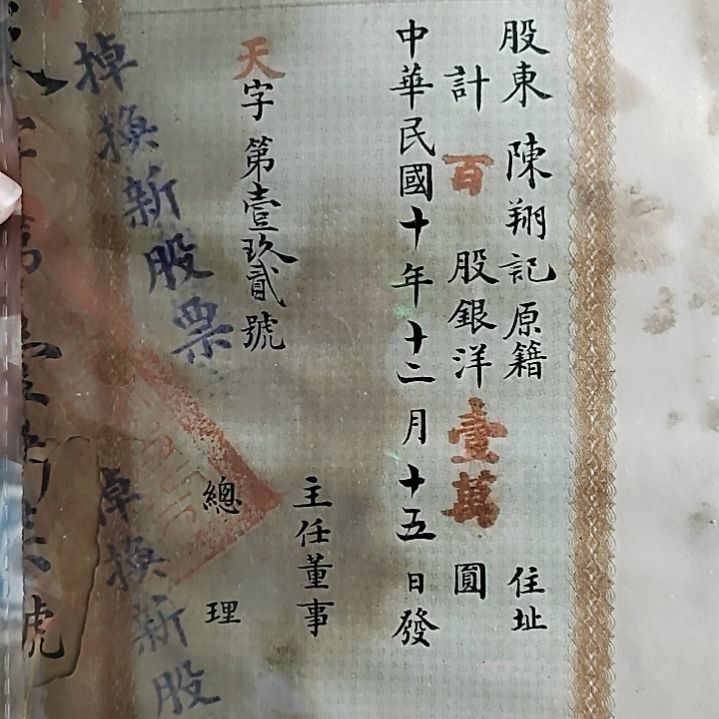 股東 陳翔記 原籍 住址
計 百 股銀洋 壹萬 圓
中華民國十年十二月十五日發
主任董事
天字第壹玖貳號
總理
掉換新股票
掉換新股